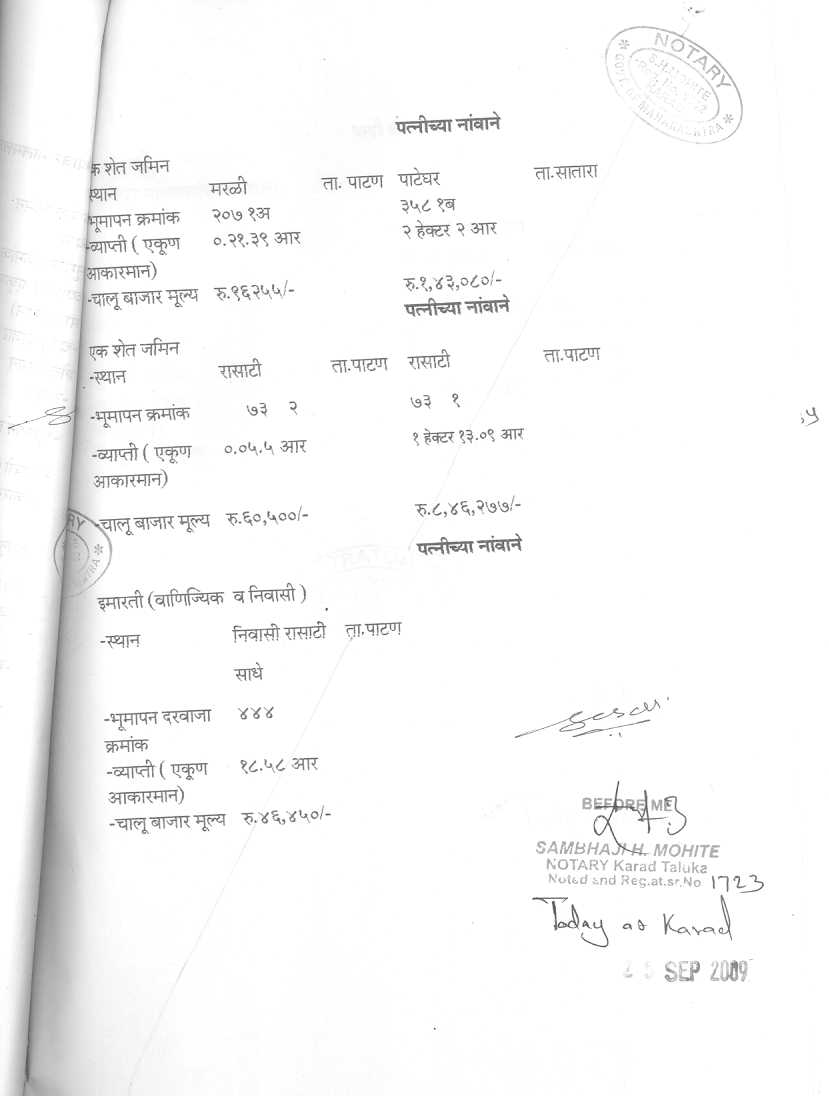 NOTARY
पत्नीच्या नांवाने
क शेत जमिन
स्थान मरळी ता. पाटण पाटेघर ता.सातारा
भूमापन क्रमांक २०७ १अ ३५८ १ब
-व्याप्ती ( एकूण ०.२१.३९ आर २ हेक्टर २ आर
आकारमान)
-चालू बाजार मूल्य रु.१६२५५/- रु.१,४३,०८०/-
पत्नीच्या नांवाने
एक शेत जमिन
-स्थान रासाटी ता.पाटण रासाटी ता.पाटण
-भूमापन क्रमांक ७३ २ ७३ १
-व्याप्ती ( एकूण ०.०५.५ आर १ हेक्टर १३.०९ आर
आकारमान)
-चालू बाजार मूल्य रु.६०,५००/- रु.८,४६,२७७/-
पत्नीच्या नांवाने
इमारती (वाणिज्यिक व निवासी )
-स्थान निवासी रासाटी ता.पाटण
साधे
-भूमापन दरवाजा ४४४
क्रमांक
-व्याप्ती ( एकूण १८.५८ आर
आकारमान)
-चालू बाजार मूल्य रु.४६,४५०/-
BEFORE ME
SAMBHAJI H. MOHITE
NOTARY Karad Taluka
Noted and Reg.at.sr.No 1723
Today at Karad
SEP 2009